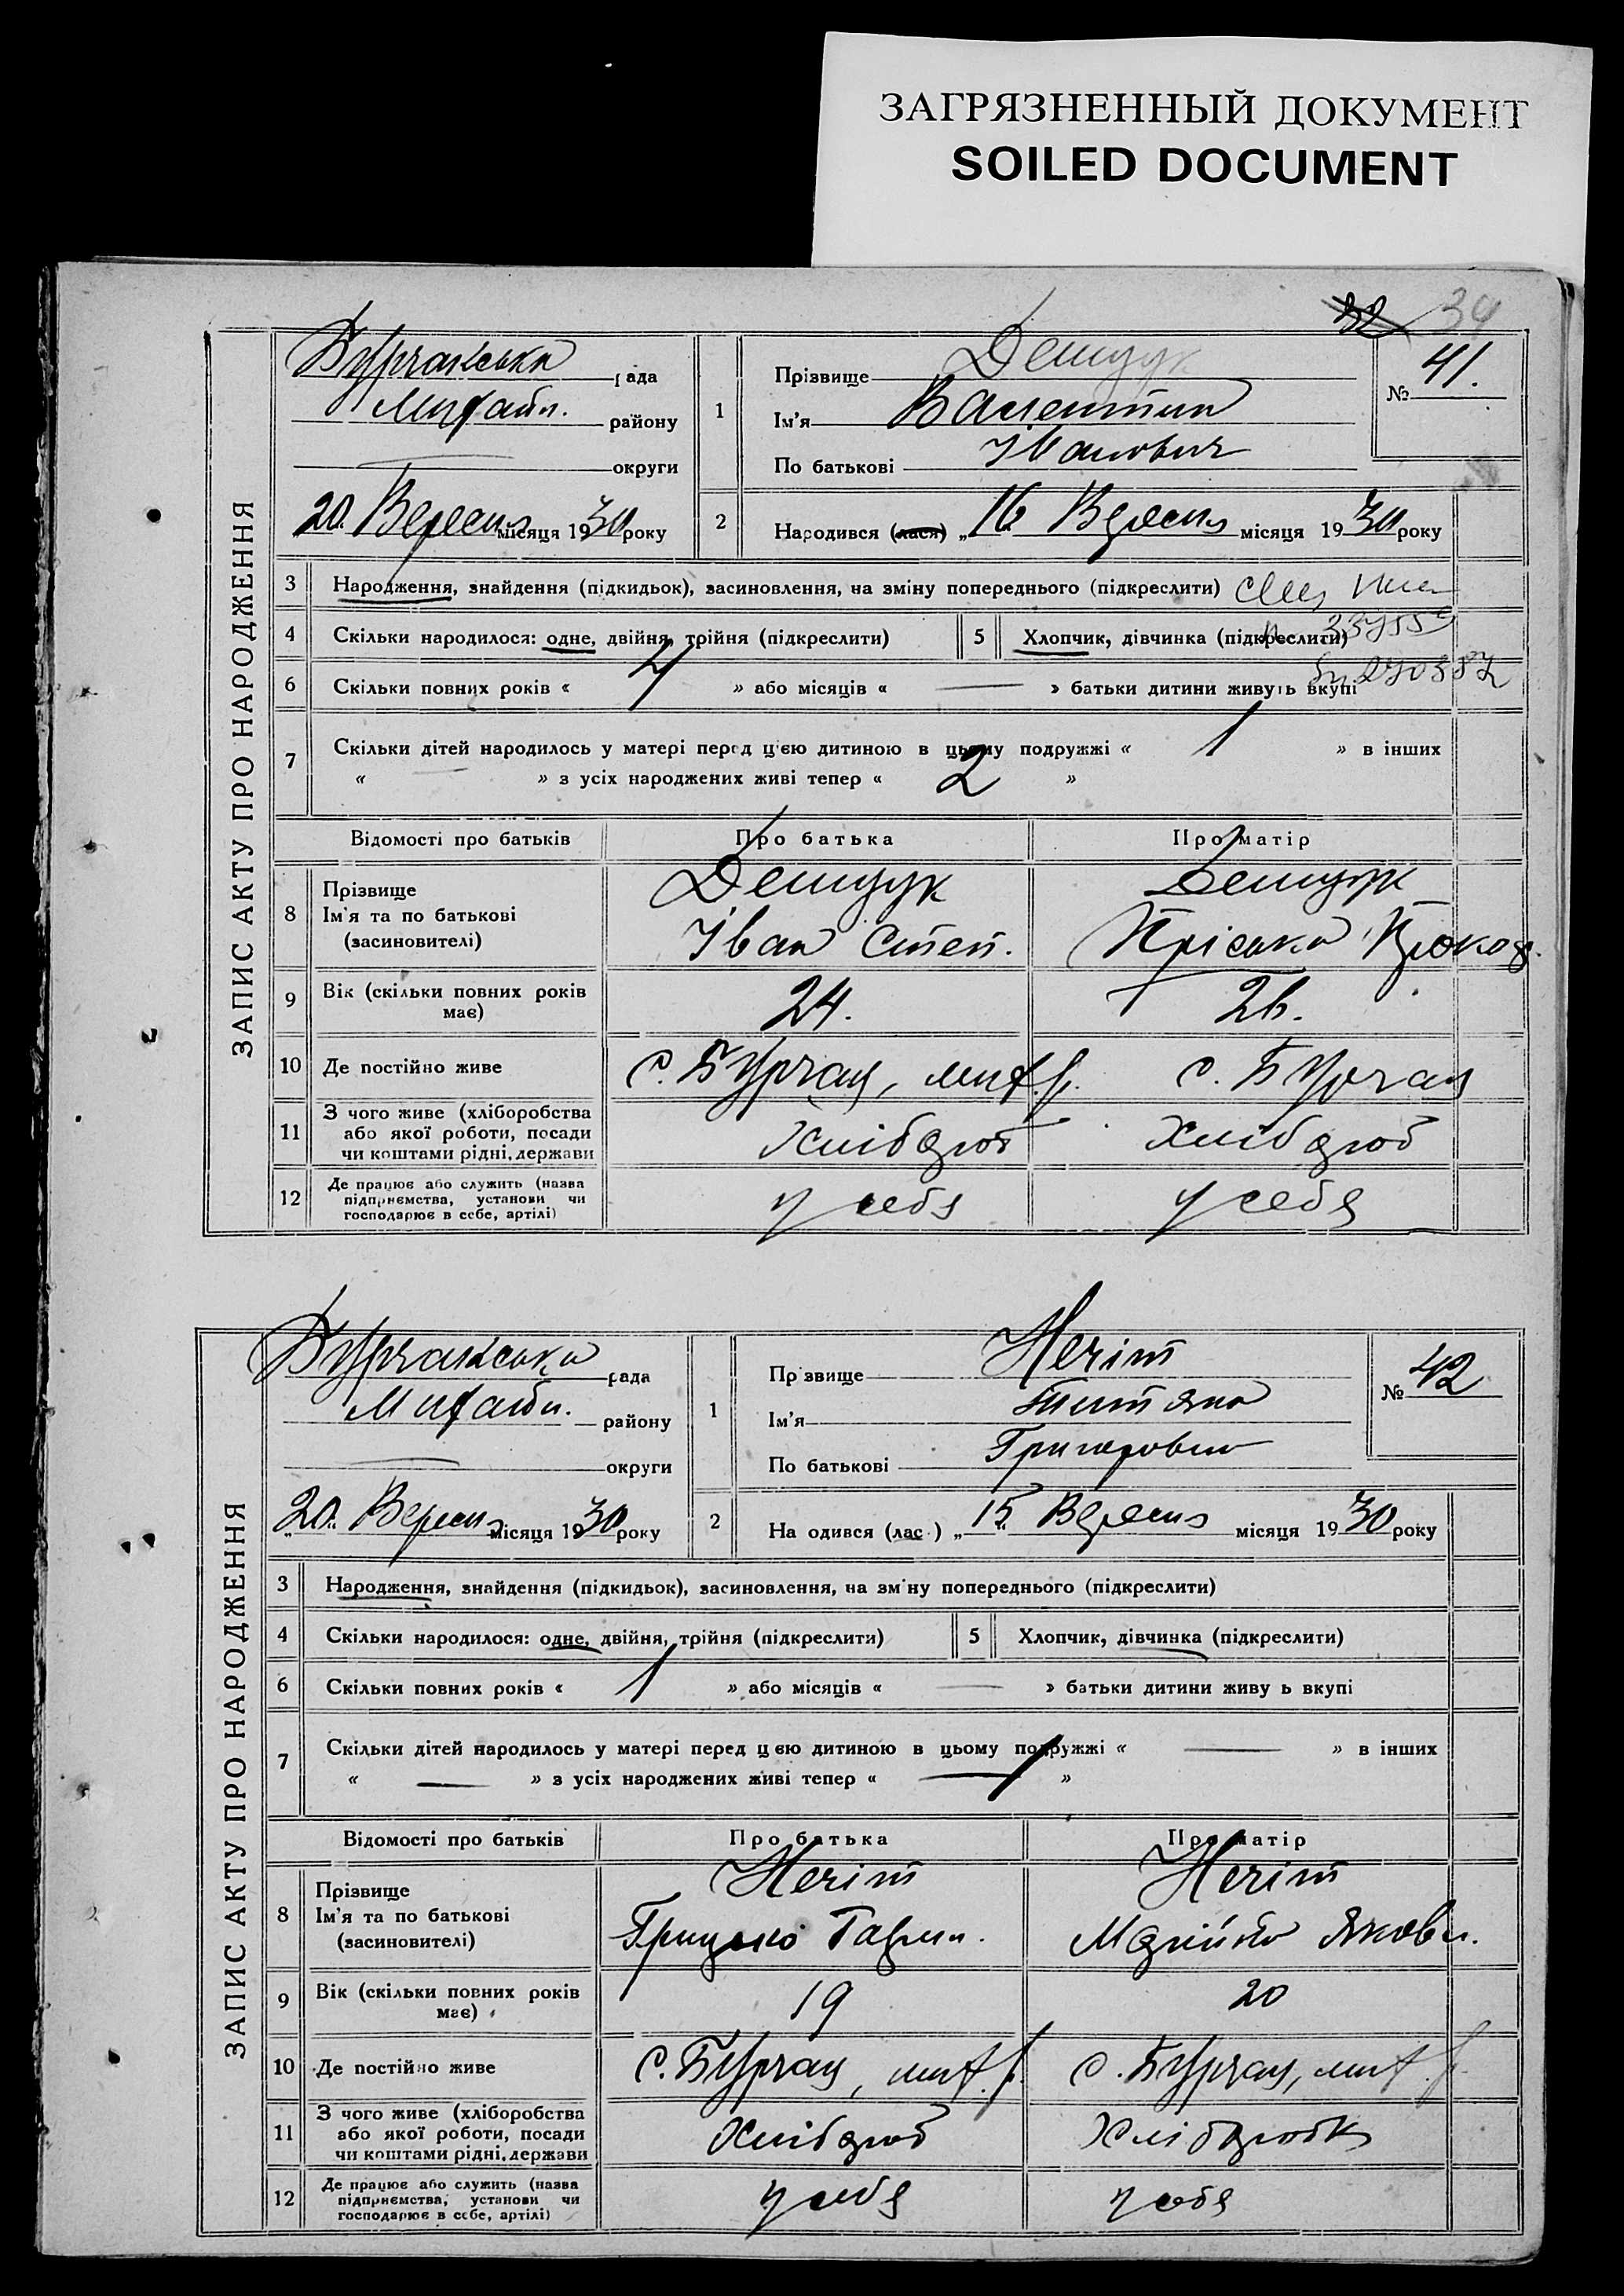 ЗАГРЯЗНЕННЫЙ ДОКУМЕНТ
SOILED DOCUMENT
32 34
ЗАПИС АКТУ ПРО НАРОДЖЕННЯ
Бурчакська рада
Михайл. району
округи
20. Вересня місяця 1930 року
1
Прізвище Дещук
Ім'я Валентин
По батькові Іванович
№ 41.
2
Народився (лася) „16 Вересня місяця 1930 року
3 Народження, знайдення (підкидьок), засиновлення, на зміну попереднього (підкреслити)
4 Скільки народилося: одне, двійня, трійня (підкреслити) 5 Хлопчик, дівчинка (підкреслити)
6 Скільки повних років « 4 » або місяців « — » батьки дитини живуть вкупі
7 Скільки дітей народилось у матері перед цією дитиною в цьому подружжі « 1 » в інших
« — » з усіх народжених живі тепер « 2 »
Відомості про батьків Про батька Про матір
8 Прізвище Дещук Дещук
Ім'я та по батькові
(засиновителі) Іван Степ. Пріська Прокоф.
9 Вік (скільки повних років має) 24. 26.
10 Де постійно живе с. Бурчак, мих. р. с. Бурчак
11 З чого живе (хліборобства
або якої роботи, посади
чи коштами рідні, держави Хлібороб Хлібороб
12 Де працює або служить (назва
підприємства, установи чи
господарює в себе, артілі) у себя у себя
ЗАПИС АКТУ ПРО НАРОДЖЕННЯ
Бурчакська рада
Михайл. району
округи
„20." Вересня місяця 1930 року
1
Прізвище Нечіт
Ім'я Титяна
По батькові Григоровна
№ 42
2
На одився (лас ) „15" Вересня місяця 1930 року
3 Народження, знайдення (підкидьок), засиновлення, на зм ну попереднього (підкреслити)
4 Скільки народилося: одне, двійня, трійня (підкреслити) 5 Хлопчик, дівчинка (підкреслити)
6 Скільки повних років « 1 » або місяців « — » батьки дитини живу ь вкупі
7 Скільки дітей народилось у матері перед цією дитиною в цьому подружжі « — » в інших
« — » з усіх народжених живі тепер « 1 »
Відомості про батьків Про батька Про матір
8 Прізвище Нечіт Нечіт
Ім'я та по батькові
(засиновителі) Грицько Гаврил. Марійка Яковл.
9 Вік (скільки повних років має) 19 20
10 Де постійно живе с. Бурчак, мих. р. с. Бурчак, мих. р.
11 З чого живе (хліборобства
або якої роботи, посади
чи коштами рідні, держави Хлібороб Хліборобка
12 Де працює або служить (назва
підприємства, установи чи
господарює в себе, артілі) у себя у себя